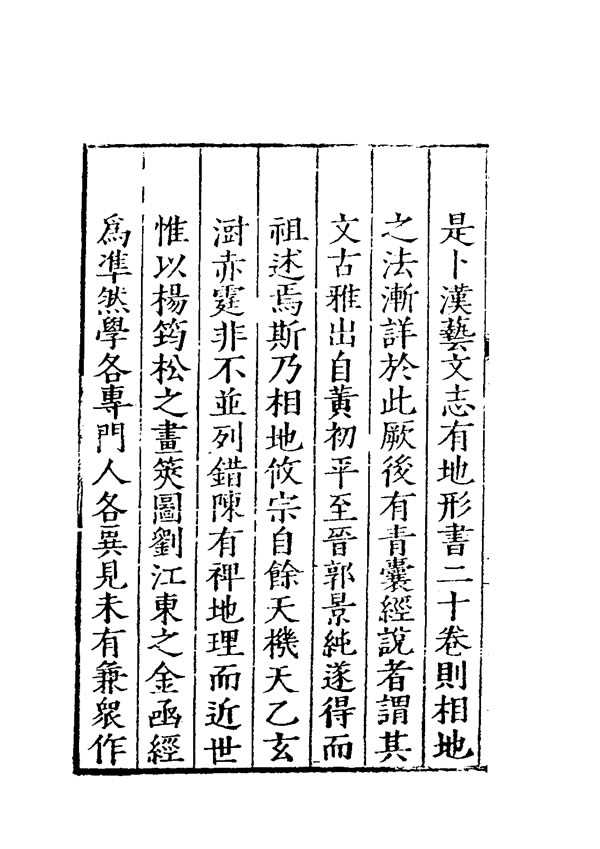 是卜漢藝文志有地形書二十卷則相地
之法漸詳於此厥後有青囊經說者謂其
文古雅出自黃初平至晉郭景純遂得而
祖述焉斯乃相地攸宗自餘天機天乙玄
㕑赤霆非不並列錯陳有裨地理而近世
惟以楊筠松之畫筴圖劉江東之金函經
爲準然學各專門人各異見未有兼衆作